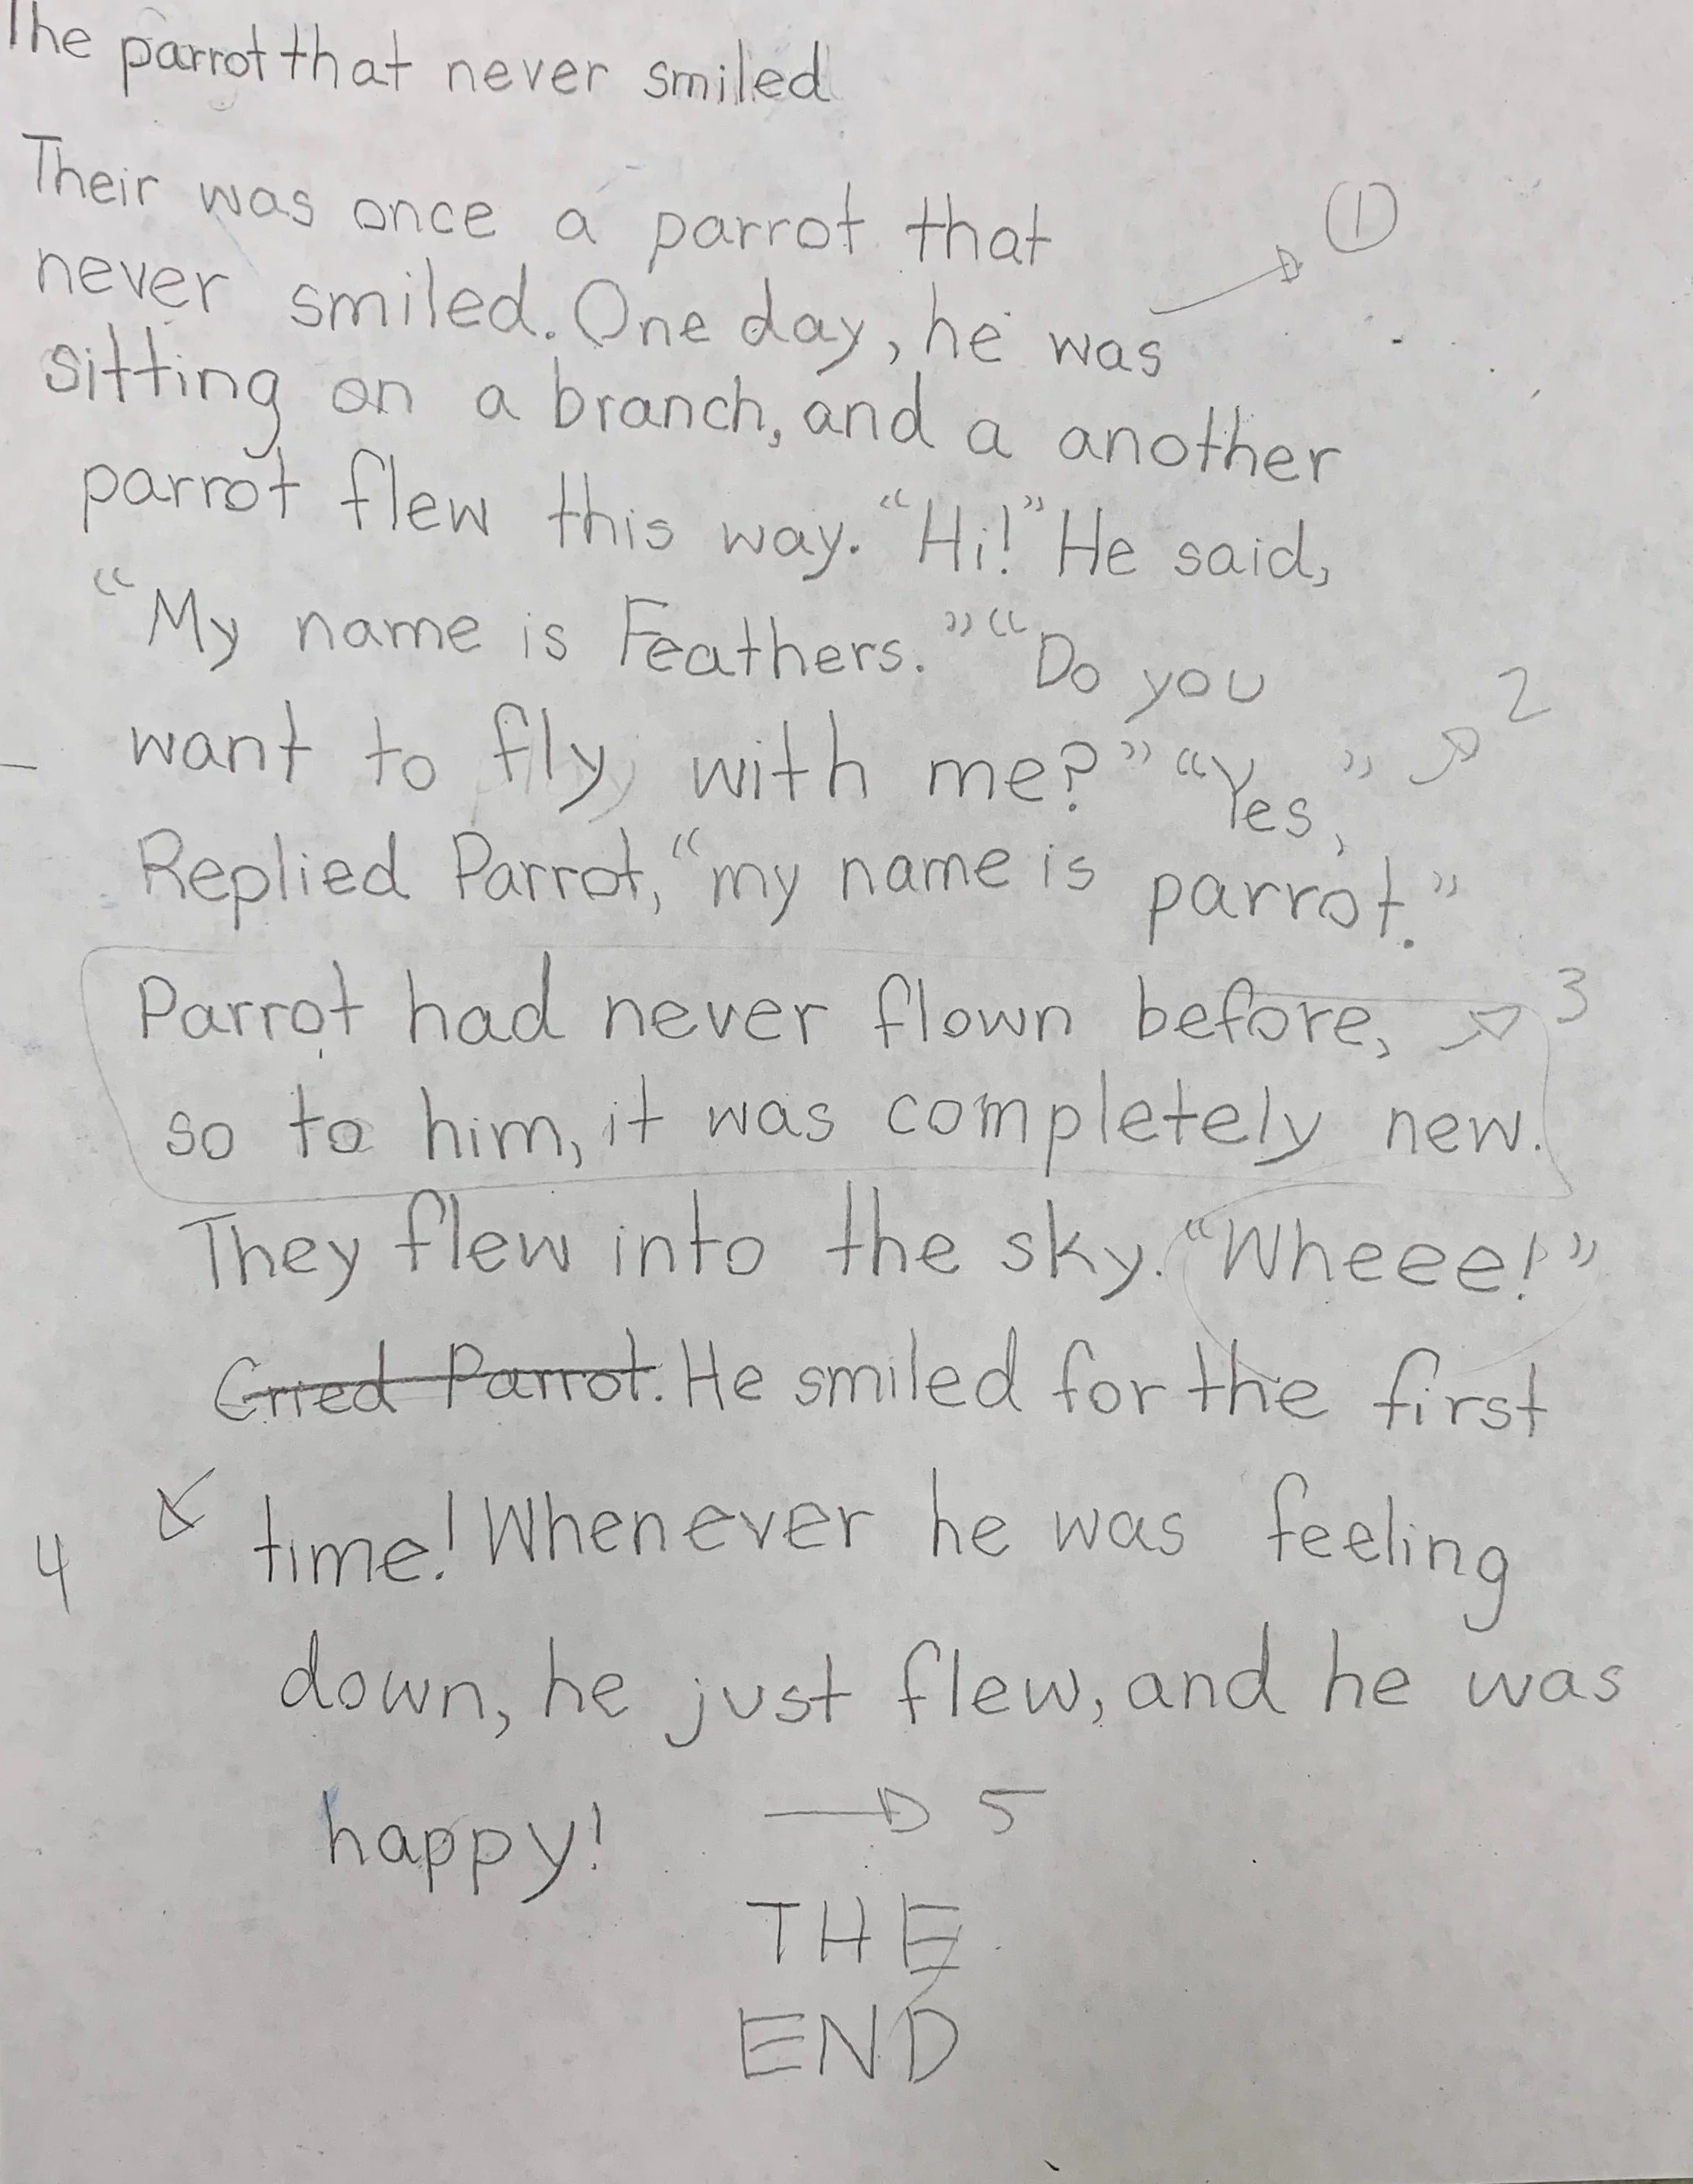 The parrot that never smiled
Their was once a parrot that
①
never smiled. One day, he was
sitting on a branch, and a another
parrot flew this way. “Hi!” He said,
“My name is Feathers.” “Do you
2
want to fly with me?” “Yes,”
Replied Parrot, “my name is parrot.”
Parrot had never flown before,
3
so to him, it was completely new.
They flew into the sky. “Wheee!”
Cried Parrot. He smiled for the first
4
time! Whenever he was feeling
down, he just flew, and he was
happy!
5
THE
END